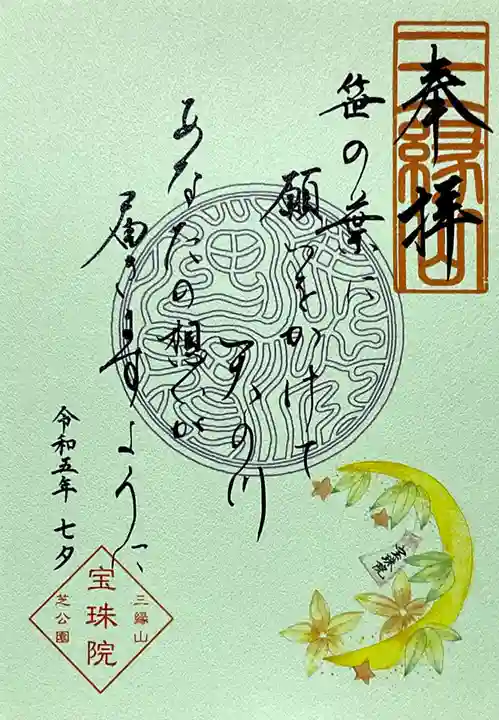 奉拝
三縁山
笹の葉に
願いをかけて
天の川
あなたの想いが
届きますように
令和五年 七夕
三縁山
宝珠院
芝公園
宝珠院